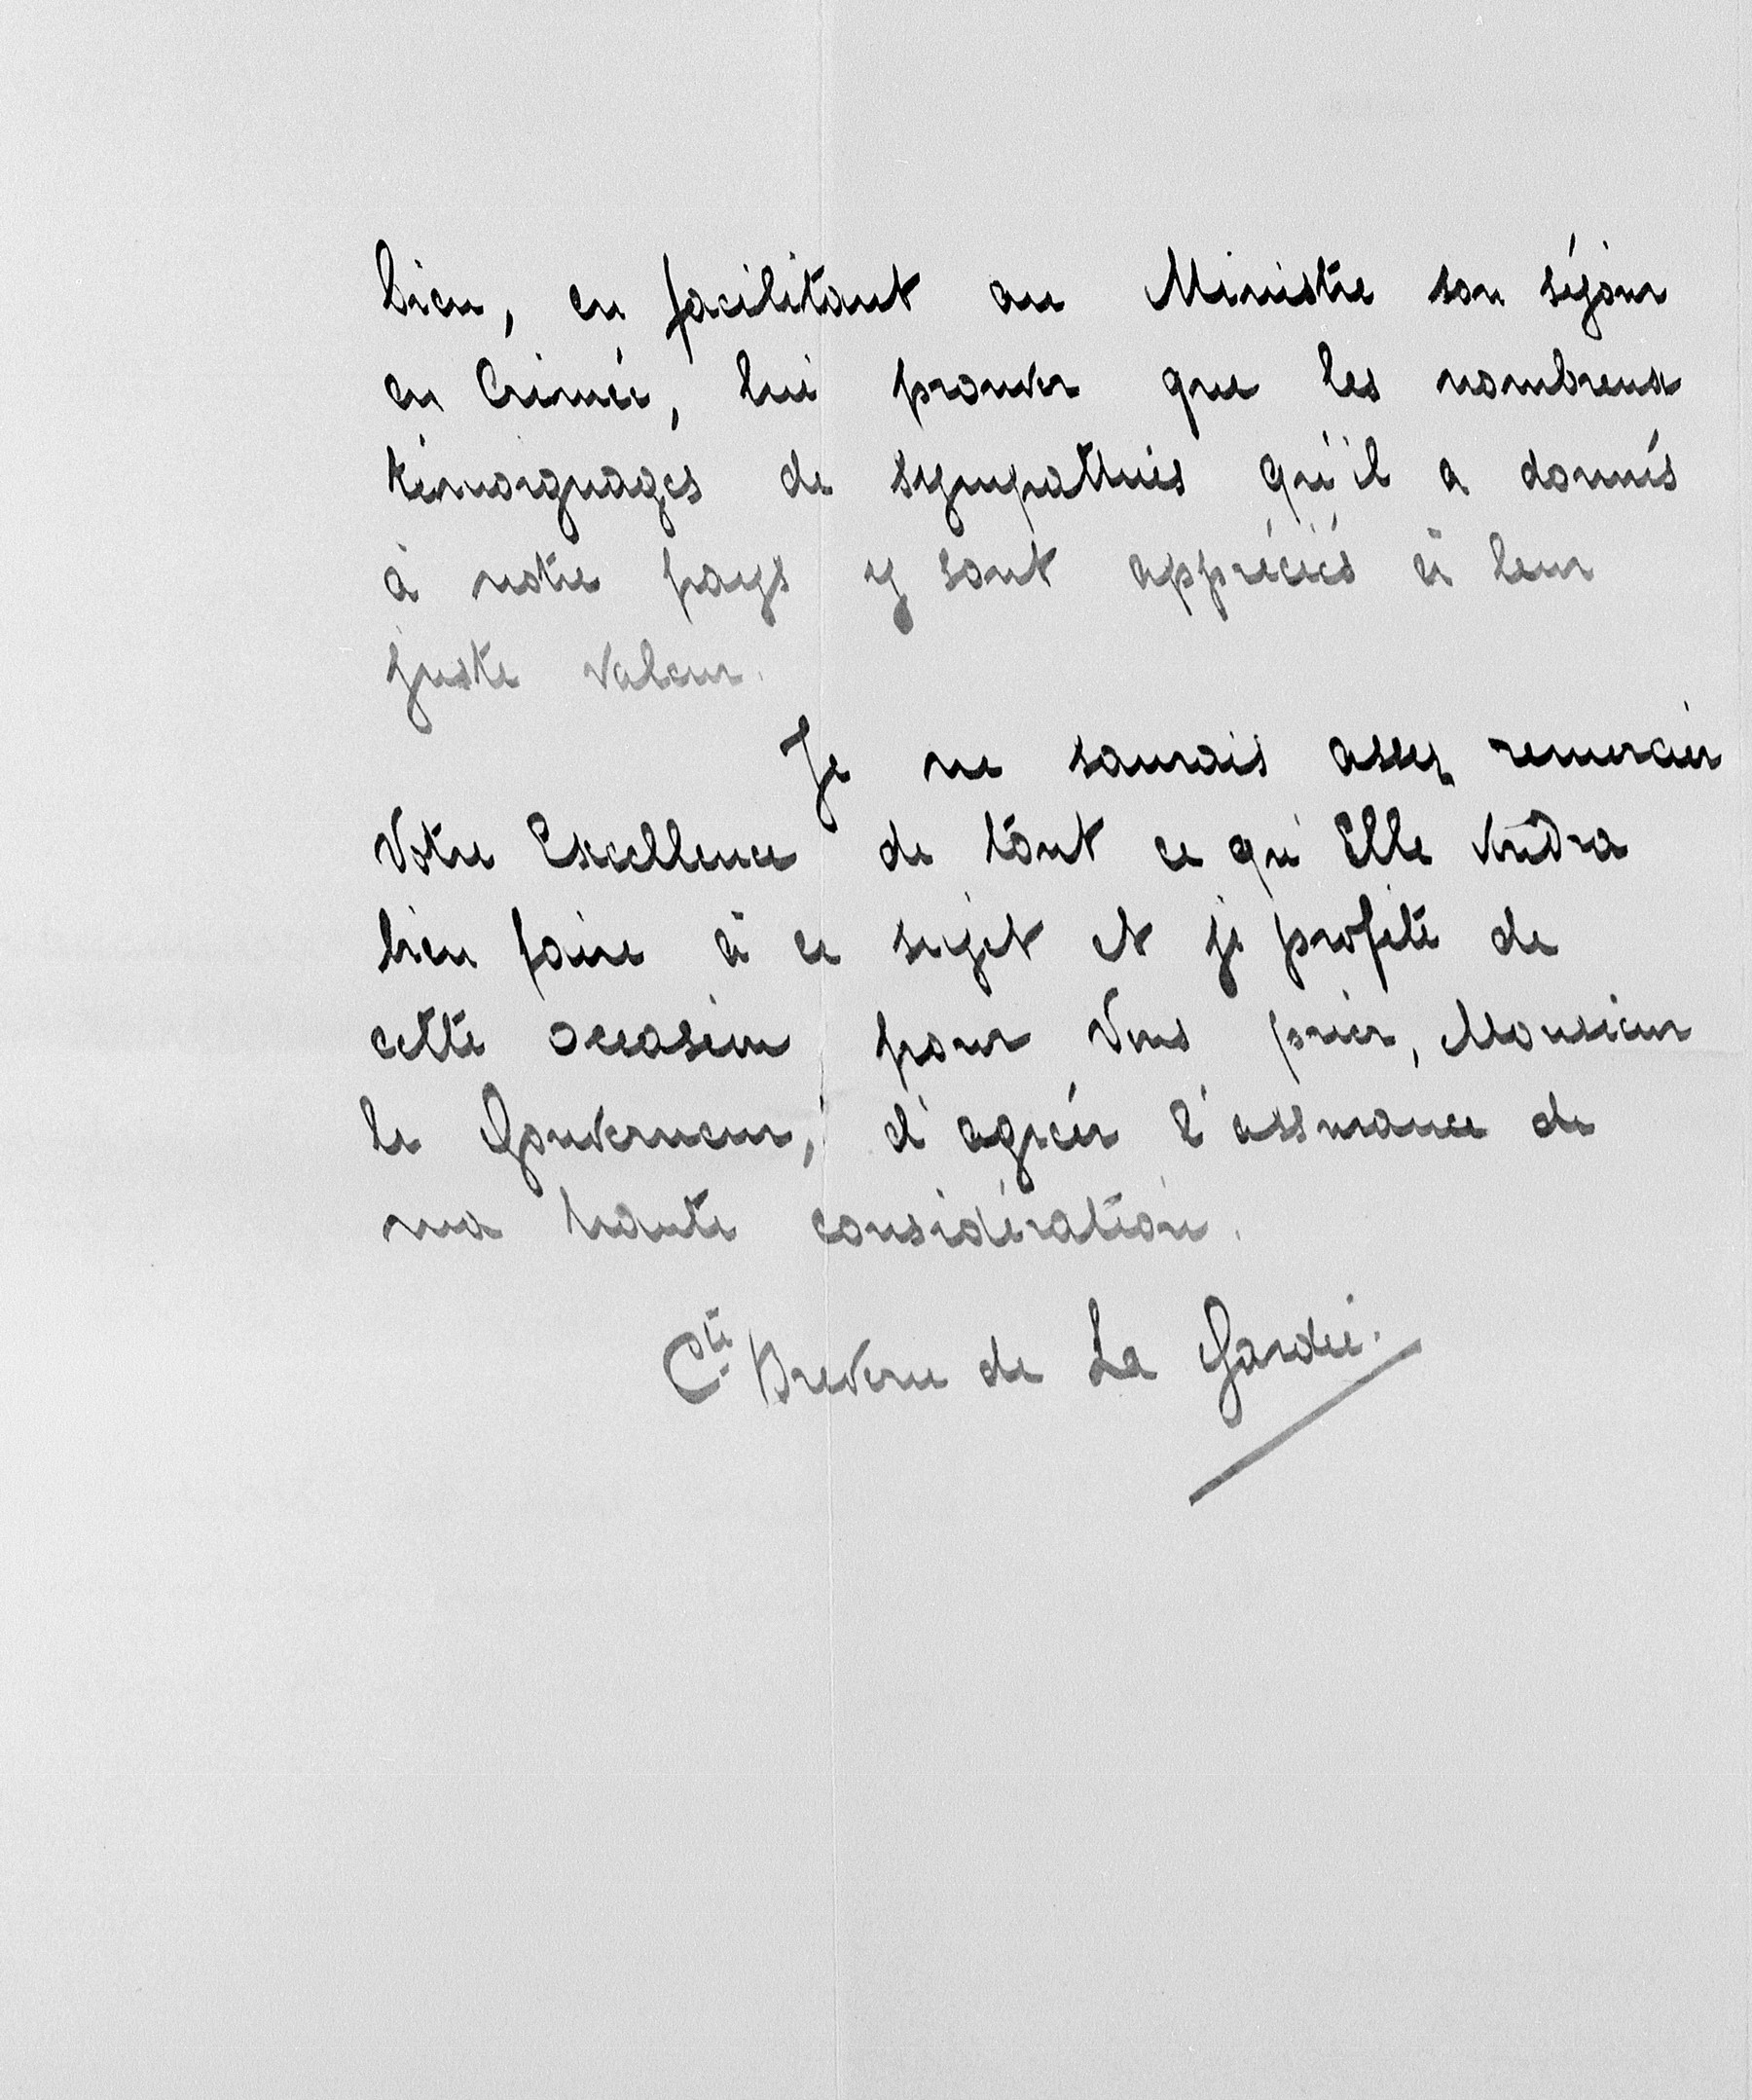 bien, en facilitant au Ministre son séjour
en Crimée, lui prouver que les nombreux
témoignages de sympathies qu'il a donnés
à notre pays y sont appréciés à leur
juste valeur.
Je ne saurais assez remercier
Votre Excellence de tout ce qu'Elle voudra
bien faire à ce sujet et je profite de
cette occasion pour Vous prier, Monsieur
le Gouverneur, d'agréer l'assurance de
ma haute considération.
Cte Brevern de La Gardie.